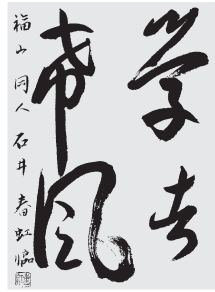 学者
希風
福山 同人 石井春虹臨